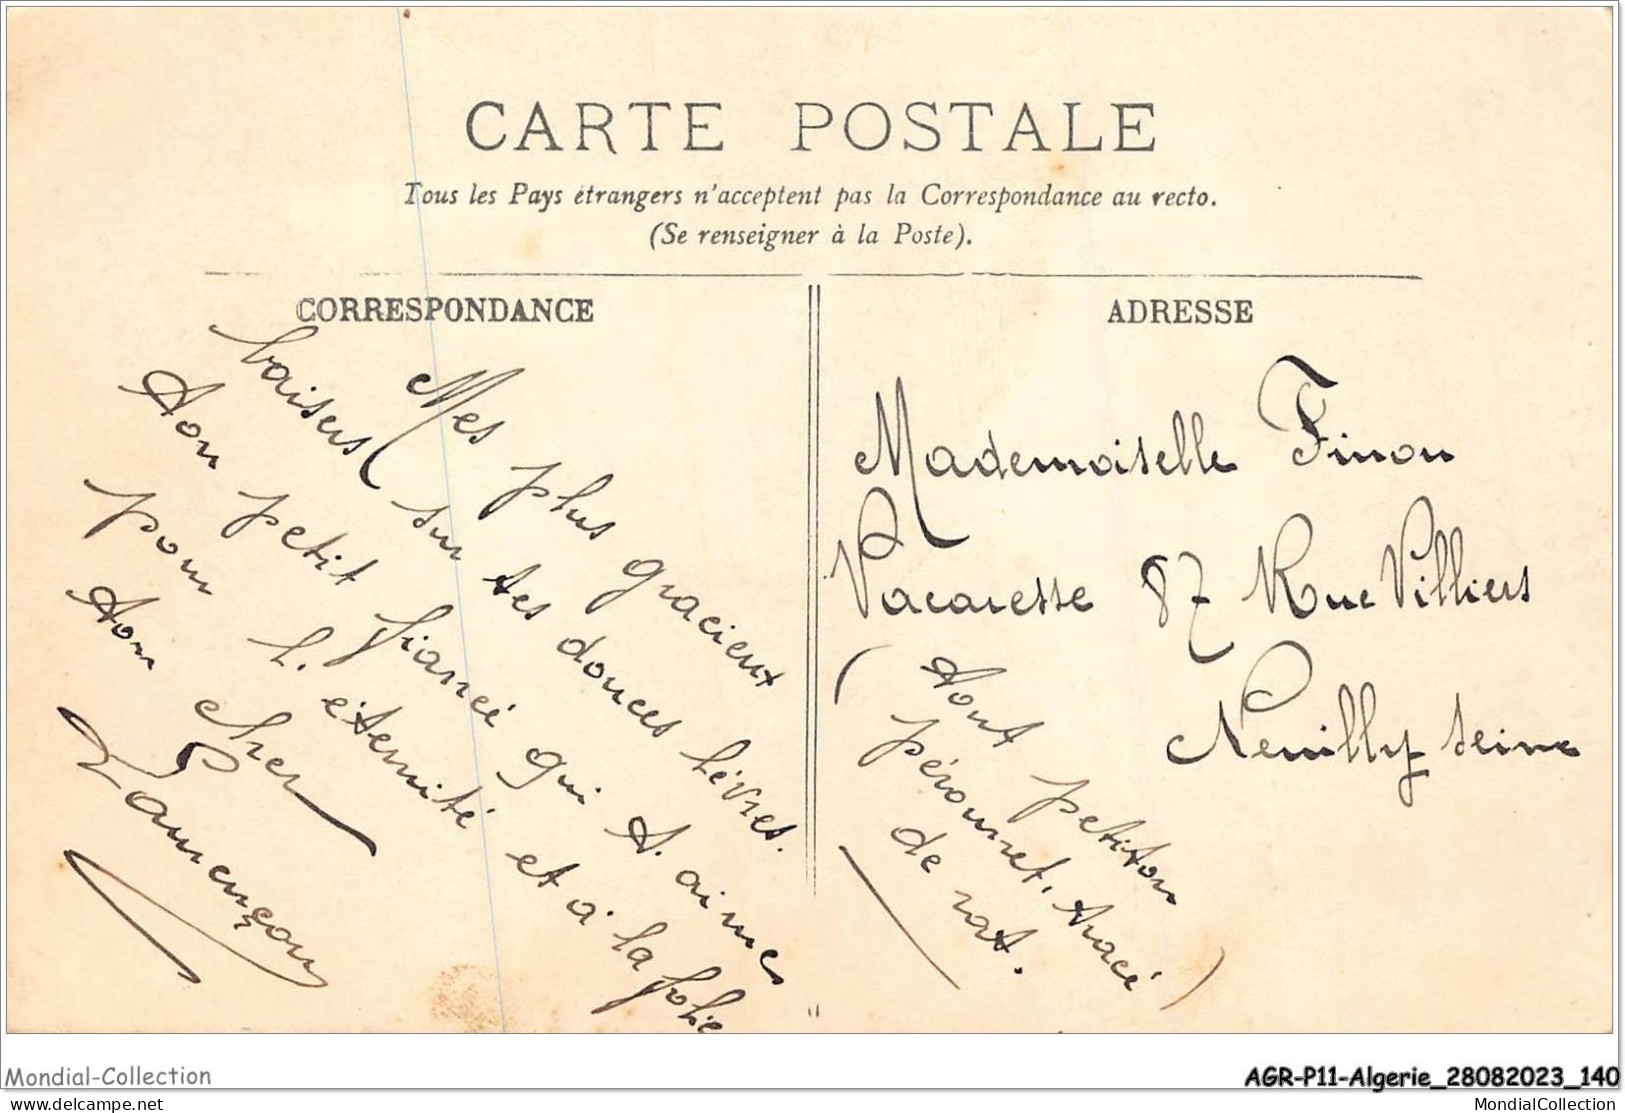 CARTE POSTALE
Tous les Pays étrangers n'acceptent pas la Correspondance au recto.
(Se renseigner à la Poste).
CORRESPONDANCE
Mes plus gracieux
baisers sur tes douces lèvres.
Ton petit fiancé qui t'aimes
pour l'éternité et à la folie
Ton cher
ADRESSE
Mademoiselle Finon
Vacaresse 87 Rue Villiers
Neuilly Seine
(
petiton
de rat.
)
Mondial-Collection
AGR-P11-Algerie_28082023_140
delcampe.net
MondialCollection